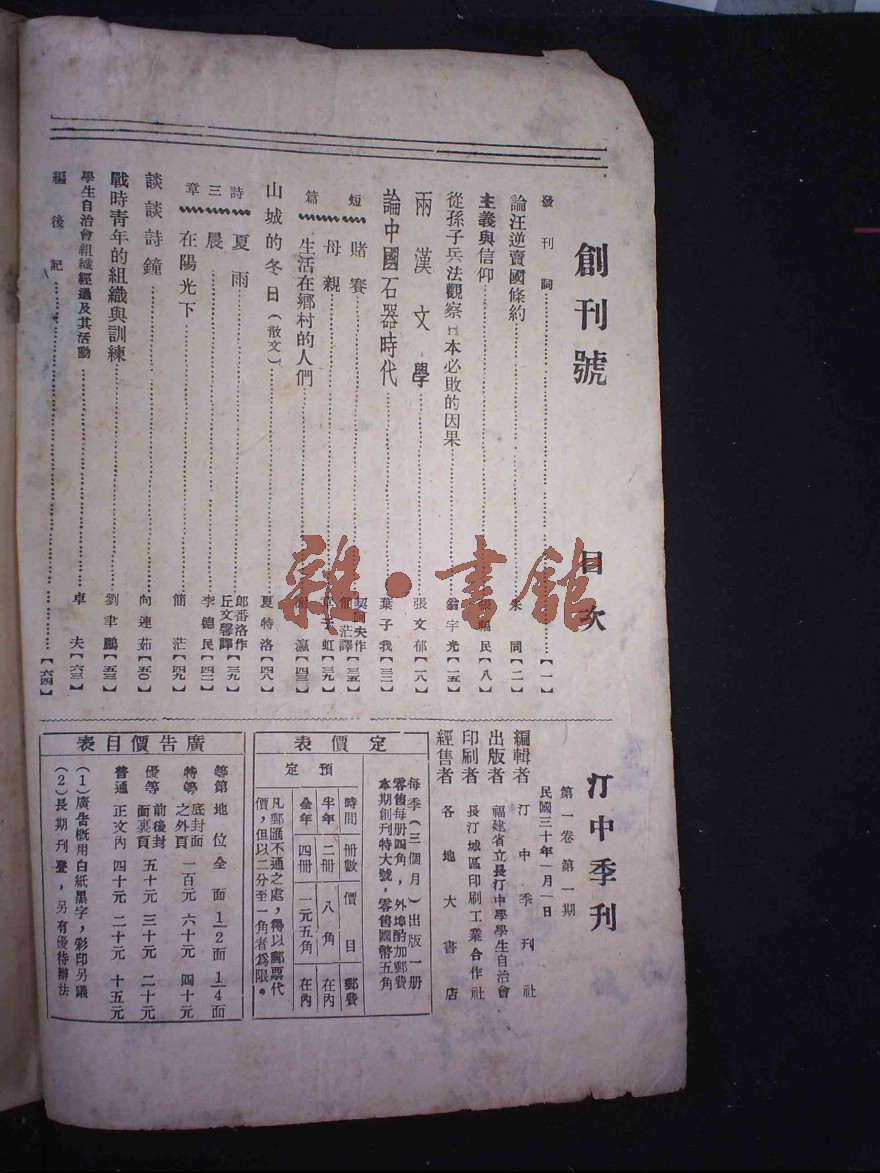 創刊號 目次
發刊詞 【一】
論汪逆賣國條約 朱同【二】
主義與信仰 民【八】
從孫子兵法觀察日本必敗的因果 翁宇光【一五】
兩漢文學 張文郁【一八】
論中國石器時代 葉子我【三二】
短篇
賭賽 契訶夫作 簡茫譯【三五】
母親 虹【三九】
生活在鄉村的人們 瀛【四三】
山城的冬日(散文) 夏特洛【四八】
詩三章
夏雨 郎番洛作 丘文馨譯【三九】
晨 李德民【四二】
在陽光下 簡茫【四九】
談談詩鐘 向連茹【五〇】
戰時青年的組織與訓練 劉聿鵬【五三】
學生自治會組織經過及其活動 卓夫【六三】
編後記 【六四】
汀中季刊
第一卷第一期
民國三十年一月一日
編輯者 汀中季刊社
出版者 福建省立長汀中學學生自治會
印刷者 長汀城區印刷工業合作社
經售者 各地大書店
定價表
每季(三個月)出版一册
零售每册四角,外埠酌加郵費
本期創刊特大號,零售國幣五角
預定
時間 册數 價目 郵費
半年 二册 八角 在內
全年 四册 一元五角 在內
凡郵匯不通之處,得以郵票代
價,但以二分至一角者爲限。
廣告價目表
等第 地位 全面 1/2面 1/4面
特等 底封面之外頁 一百元 六十元 四十元
優等 前後封面裏頁 五十元 三十元 二十元
普通 正文內 四十元 二十元 十五元
(1)廣告概用白紙黑字,彩印另議
(2)長期刊登,另有優待辦法
雜·書館